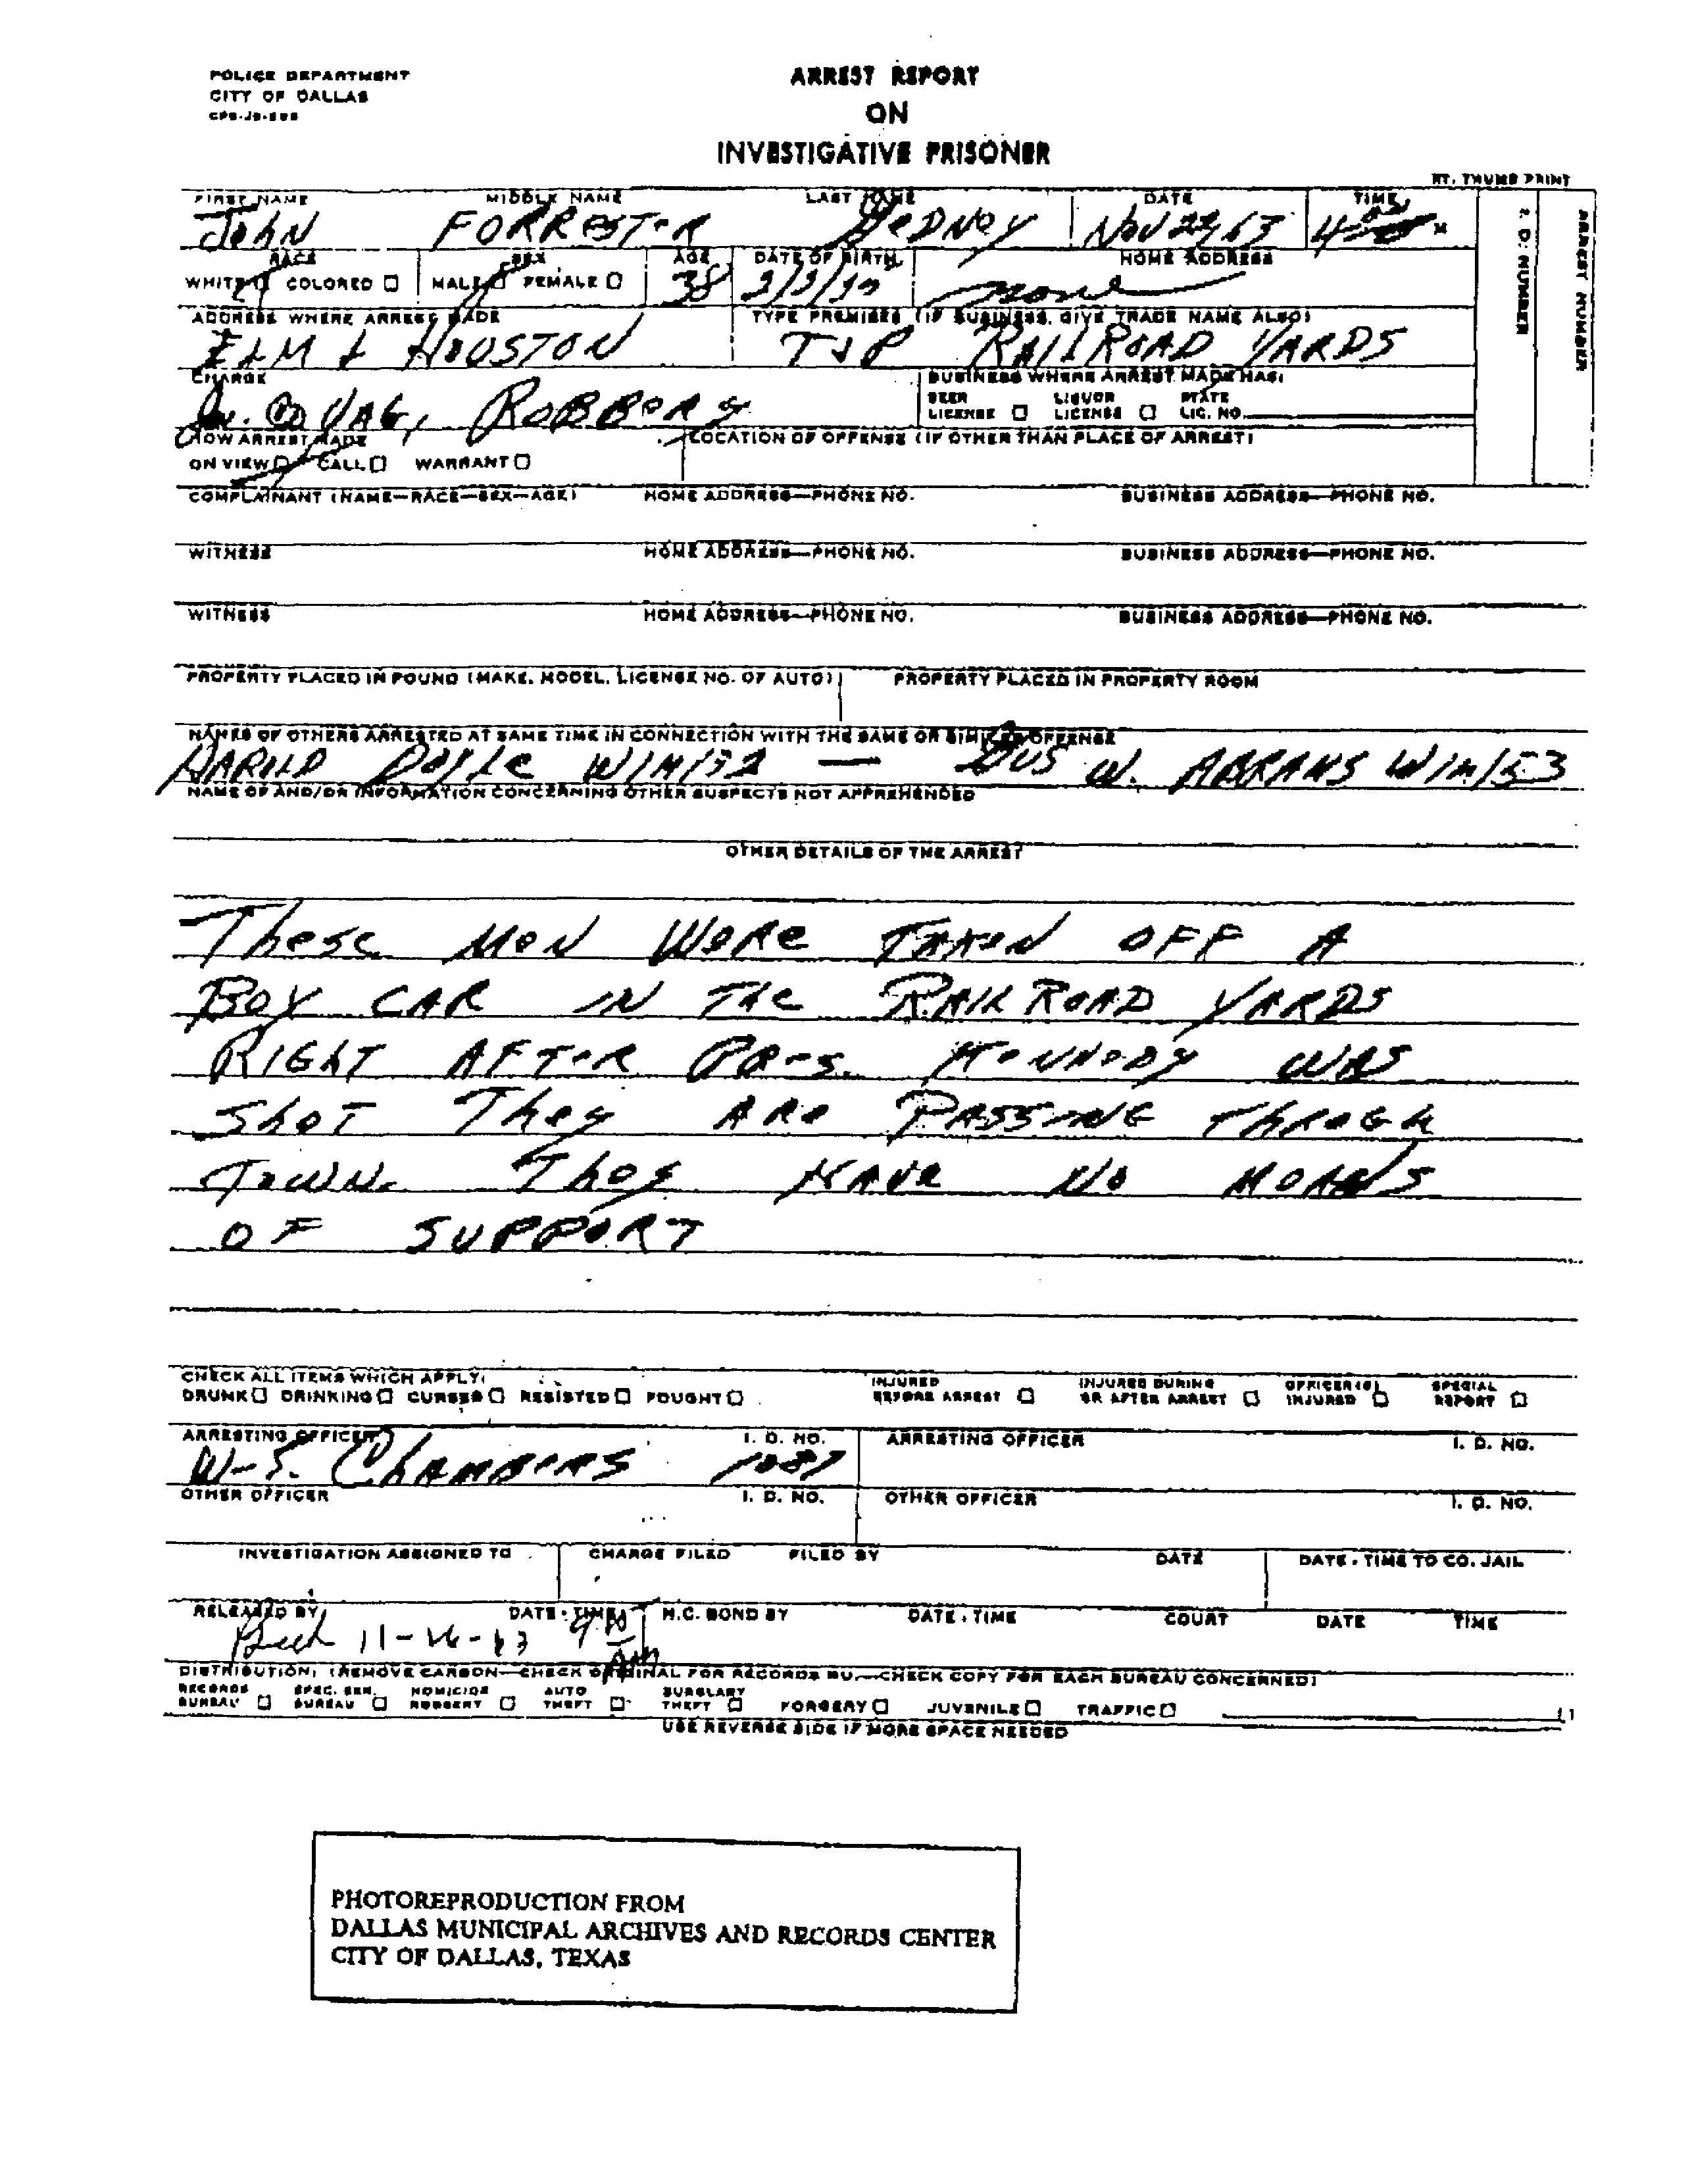 POLICE DEPARTMENT
CITY OF DALLAS
ARREST REPORT
ON
INVESTIGATIVE PRISONER
RT. THUMB PRINT
FIRST NAME MIDDLE NAME LAST NAME DATE TIME
John FORRESTER GEDNEY Nov 22, 63 4
I. D. NUMBER
ARREST NUMBER
RACE SEX AGE DATE OF BIRTH HOME ADDRESS
WHITE COLORED MALE FEMALE 38 none
ADDRESS WHERE ARREST MADE TYPE PREMISES (IF BUSINESS, GIVE TRADE NAME ALSO)
ELM & HOUSTON T&P RAILROAD YARDS
CHARGE BUSINESS WHERE ARREST MADE HAS:
VAG, ROBBERY
BEER LICENSE LIQUOR LICENSE STATE LIC. NO.
HOW ARREST MADE LOCATION OF OFFENSE (IF OTHER THAN PLACE OF ARREST)
ON VIEW CALL WARRANT
COMPLAINANT (NAME—RACE—SEX—AGE) HOME ADDRESS—PHONE NO. BUSINESS ADDRESS—PHONE NO.
WITNESS HOME ADDRESS—PHONE NO. BUSINESS ADDRESS—PHONE NO.
WITNESS HOME ADDRESS—PHONE NO. BUSINESS ADDRESS—PHONE NO.
PROPERTY PLACED IN POUND (MAKE, MODEL, LICENSE NO. OF AUTO) PROPERTY PLACED IN PROPERTY ROOM
NAMES OF OTHERS ARRESTED AT SAME TIME IN CONNECTION WITH THE SAME OR SIMILAR OFFENSE
HAROLD DOYLE W/M/32 — GUS W. ABRAMS W/M/53
NAME OF AND/OR INFORMATION CONCERNING OTHER SUSPECTS NOT APPREHENDED
OTHER DETAILS OF THE ARREST
These MEN WERE TAKEN OFF A
BOX CAR IN THE RAILROAD YARDS
RIGHT AFTER PRES. KENNEDY WAS
SHOT They ARE PASSING THROGH
TOWN. They HAVE NO MEANS
OF SUPPORT
CHECK ALL ITEMS WHICH APPLY:
DRUNK DRINKING CURSED RESISTED FOUGHT INJURED BEFORE ARREST INJURED DURING OR AFTER ARREST OFFICER(S) INJURED SPECIAL REPORT
ARRESTING OFFICER I. D. NO. ARRESTING OFFICER I. D. NO.
W-S. CHAMBERS 1087
OTHER OFFICER I. D. NO. OTHER OFFICER I. D. NO.
INVESTIGATION ASSIGNED TO CHARGE FILED FILED BY DATE DATE - TIME TO CO. JAIL
RELEASED BY DATE - TIME H.C. BOND BY DATE - TIME COURT DATE TIME
11-26-63 AM
DISTRIBUTION: (REMOVE CARBON—CHECK ORIGINAL FOR RECORDS BU.—CHECK COPY FOR EACH BUREAU CONCERNED)
RECORDS BUREAU SPEC. SER. BUREAU HOMICIDE ROBBERY AUTO THEFT BURGLARY THEFT FORGERY JUVENILE TRAFFIC
USE REVERSE SIDE IF MORE SPACE NEEDED
PHOTOREPRODUCTION FROM
DALLAS MUNICIPAL ARCHIVES AND RECORDS CENTER
CITY OF DALLAS, TEXAS